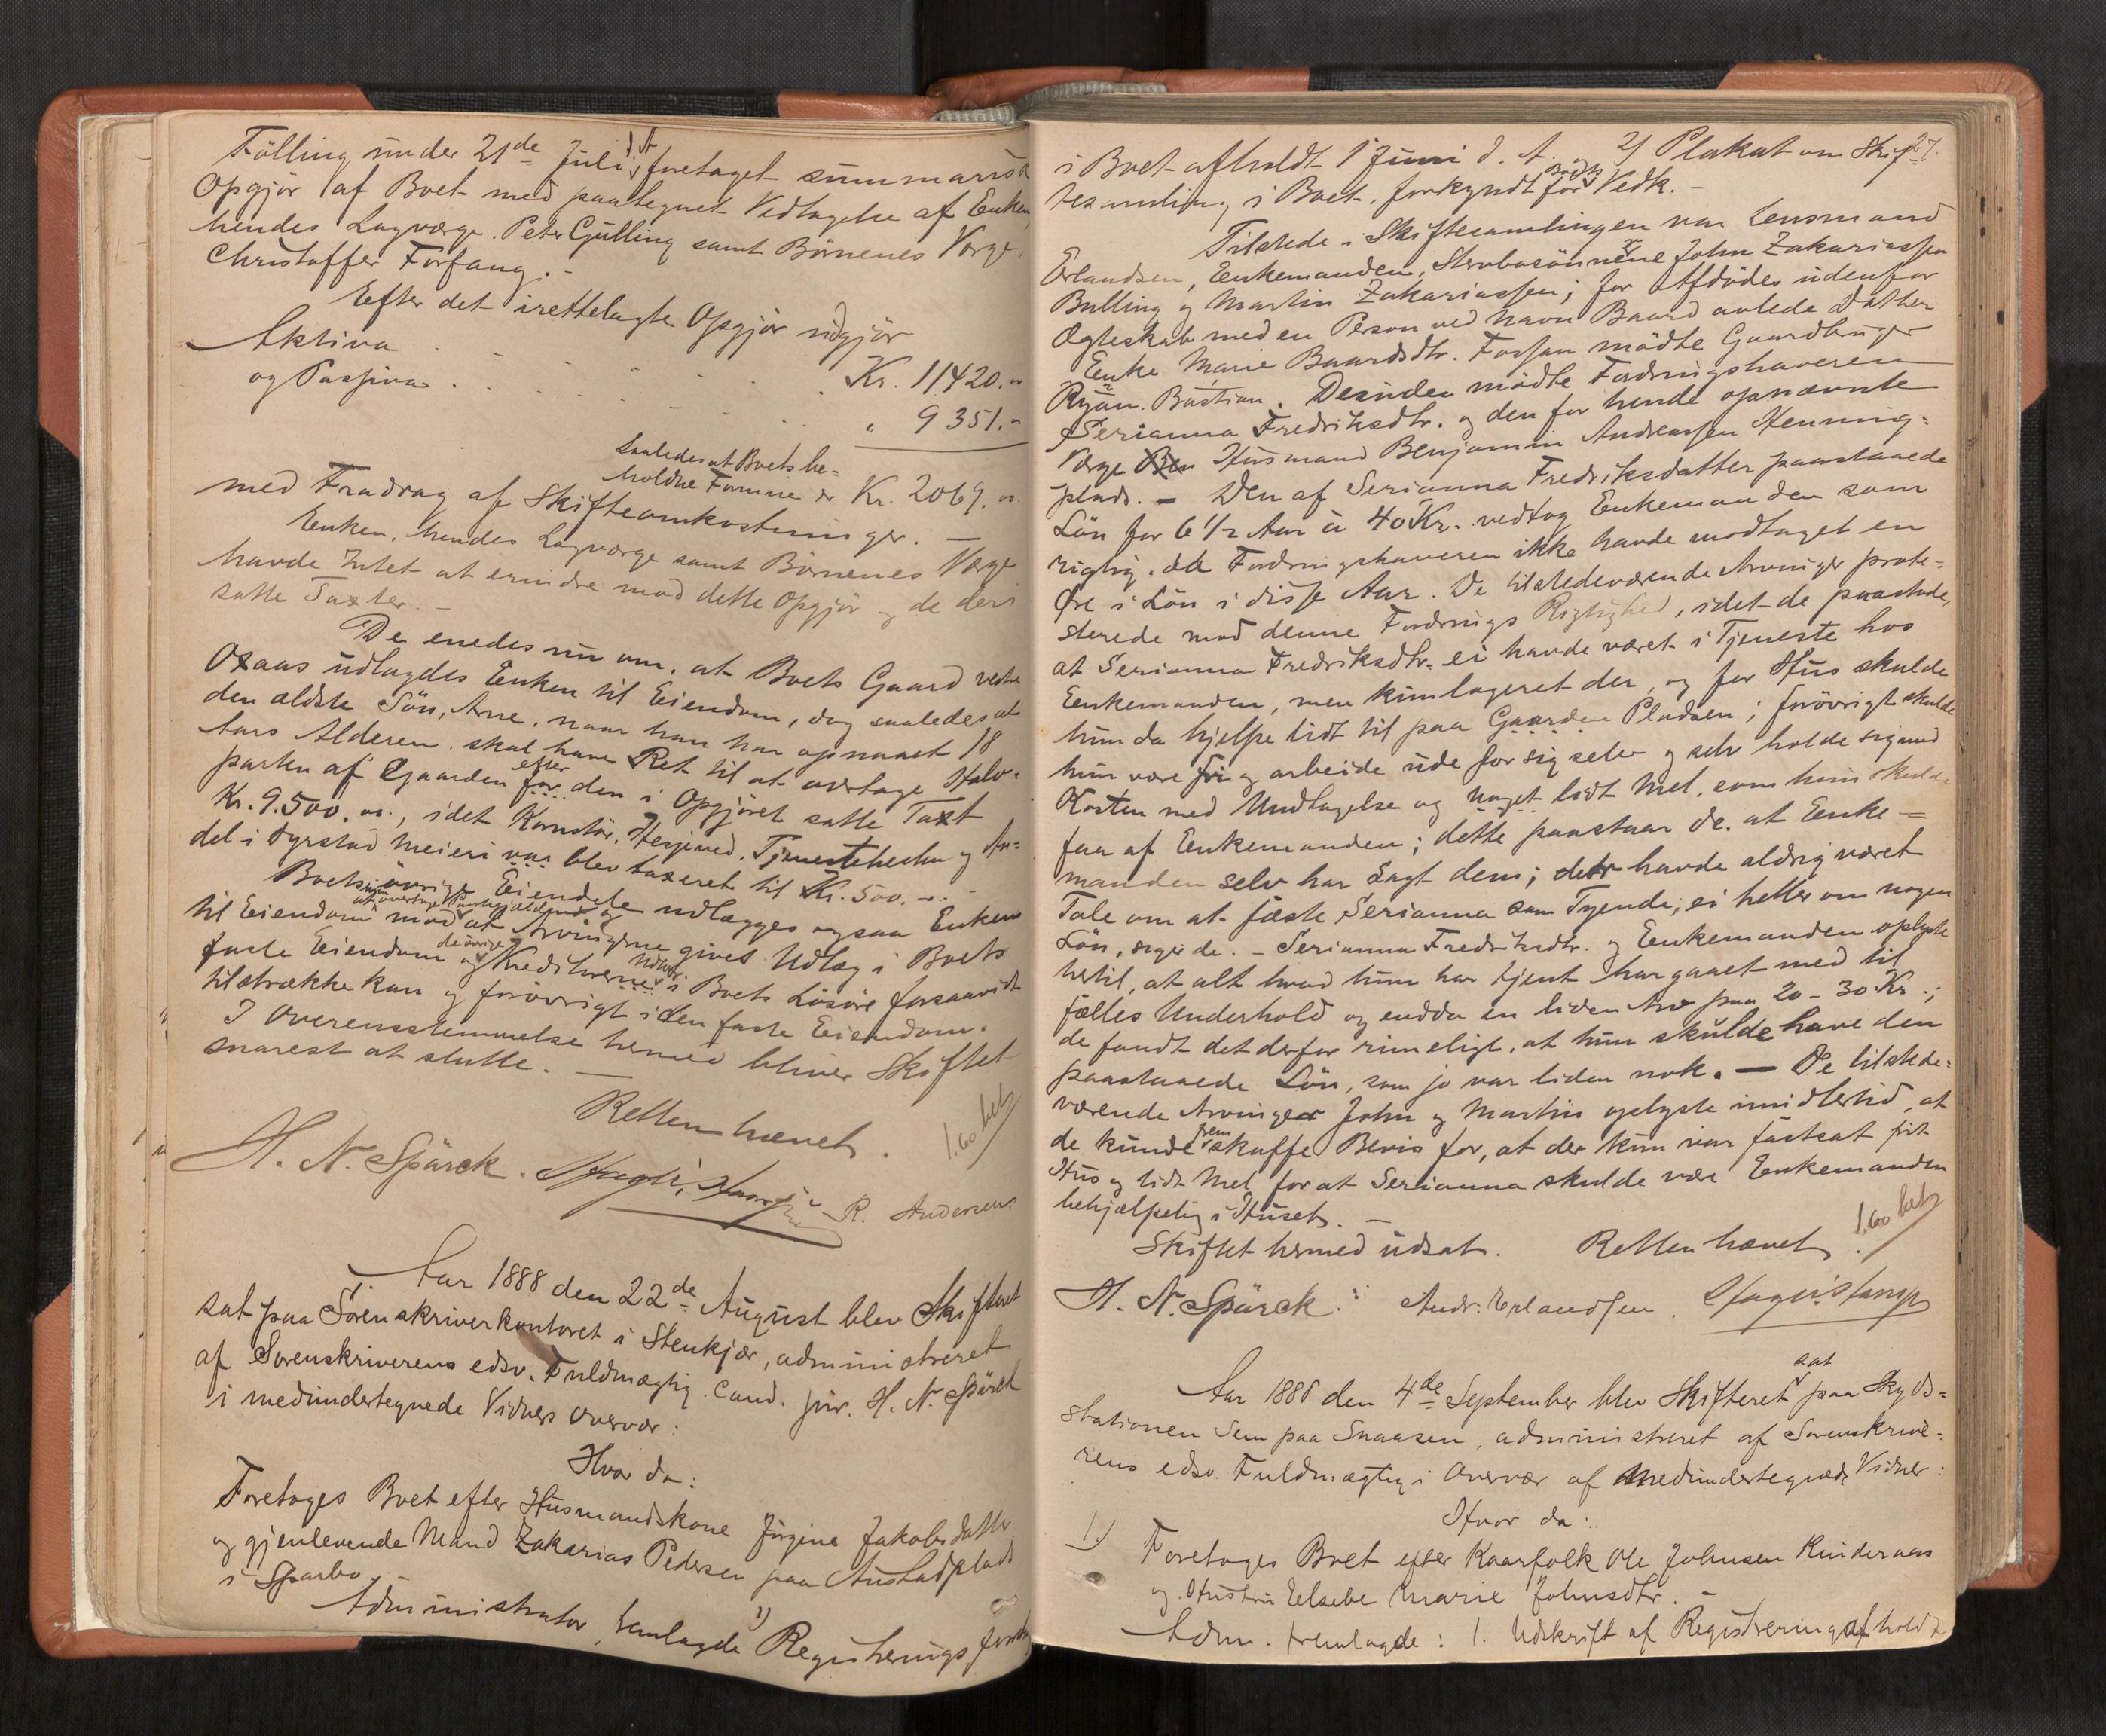 Fölling under 21de Juli d. A. foretaget summarisk
Opgjör af Boet med paategnet Vedtagelse af Enken,
hendes Lagværge Peter Gulling samt Börnenes Værge,
Christoffer Forfang. -
Efter det irettelagte Opgjör udgjör
Aktiva . . . . . Kr. 11420.00
og Passiva . . . . . " 9351.00
saaledes at Boets be=
holdne Formue er Kr. 2069.00
med Fradrag af Skifteomkostninger. -
Enken, hendes Lagværge samt Börnenes Værge
havde Intet at erindre mod dette Opgjör og de deri
satte Taxter. -
De enedes nu om, at Boets Gaard vestre
Oxaas udlagdes Enken til Eiendom, dog saaledes at
den ældste Sön, Arne, naar han har opnaaet 18
Aars Alderen, skal have Ret til at overtage Halv=
parten af Gaarden for efter den i Opgjöret satte Taxt
Kr. 9.500.00, idet Kornstör, Hesjeved, Tjenestehesten og An=
del i Dyrstad Meieri var blev taxeret til Kr. 500.00.
Boets övrige Eiendele udlægges ogsaa Enken
til Eiendom mod at Arvingerne gives Udlæg i Boets
faste Eiendom og de övrige Kreditorerne Udlæg i Boets Lösöre forsaavidt
tilstrække kan og forövrigt i den faste Eiendom.
I Overensstemmelse hermed bliver Skiftet
snarest at slutte. -
Retten hævet.
1.60 bet
H. N. Spärck. R. Andersen.
Aar 1888 den 22de August blev Skifteret
sat paa Sorenskriverkontoret i Stenkjær, administreret
af Sorenskriverens edsv. Fuldmægtig Cand. jur. H. N. Spärck
i medundertegnede Vidners Overvær:
Hvor da:
Foretoges Boet efter Husmandskone Jörgine Jakobsdatter
og gjenlevende Mand Zakarias Pedersen paa Austadplads
i Sparbo.
Administrator fremlagde 1) Registreringsforretn
27.
i Boet afholdt 1 Juni d. A. 2) Plakat om Skif=
tesamling i Boet, forkyndt for Vedk. -
Tilstede i Skiftesamlingen var Lensmand
Erlandsen, Enkemanden, Stervbosönnerne John Zakariassen
Bulling og Martin Zakariassen; for Afdödes udenfor
Ægteskab med en Person ved Navn Baard avlede Datter
Enke Marie Baardsdtr. Forfan mödte Gaardbruger
Ryan. Bastian. Desuden mödte Fordringshaveren
Serianna Fredriksdtr. og den for hende opnævnte
Værge Ben Husmand Benjamin Andreassen Henning=
plads. - Den af Serianna Fredriksdatter paastaaede
Lön for 6 1/2 Aar à 40 Kr. vedtog Enkemanden som
rigtig, da Fordringshaveren ikke havde modtaget en
Öre i Lön i disse Aar. De tilstedeværende Arvinger prote=
sterede mod denne Fordrings Rigtighed, idet de paastode,
at Serianna Fredriksdtr. ei havde været i Tjeneste hos
Enkemanden, men kun logeret der, og for Hus skulde
hun da hjelpe lidt til paa Gaarden Pladsen; forövrigt skulde
hun være fri og arbeide ude for sig selv og selv holde sig med
Kosten med Undtagelse og noget lidt Mel, som hun skulde
faa af Enkemanden; dette paastaar de, at Enke=
manden selv har sagt dem; der havde aldrig været
Tale om at fæste Serianna som Tyende, ei heller om nogen
Lön, siger de. - Serianna Fredriksdtr. og Enkemanden oplyste
hertil, at alt hvad hun har tjent har gaaet med til
fælles Underhold og endda en liden Arv paa 20 - 30 Kr.;
de fandt det derfor rimeligt, at hun skulde have den
paastaaede Lön, som jo var liden nok. - De tilstede=
værende Arvinger John og Martin oplyste imidlertid, at
de kunde fremskaffe Bevis for, at der kun var fastsat frit
Hus og lidt Mel for at Serianna skulde være Enkemanden
behjælpelig i Huset. -
Skiftet hermed udsat. Retten hævet.
1.60 bet
H. N. Spärck. Andr. Erlandsen.
Aar 1888 den 4de September blev Skifteret sat paa Skyds=
stationen Sem paa Snaasen, administreret af Sorenskrive=
rens edsv. Fuldmægtig i Overvær af medundertegnede Vidner:
Hvor da:
1.) Foretoges Boet efter Kaarfolk Ole Johnsen Kinderaas
og Hustru Elsebe Marie Johnsdtr. -
Adm. fremlagde: 1. Udskrift af Registrering afholdt